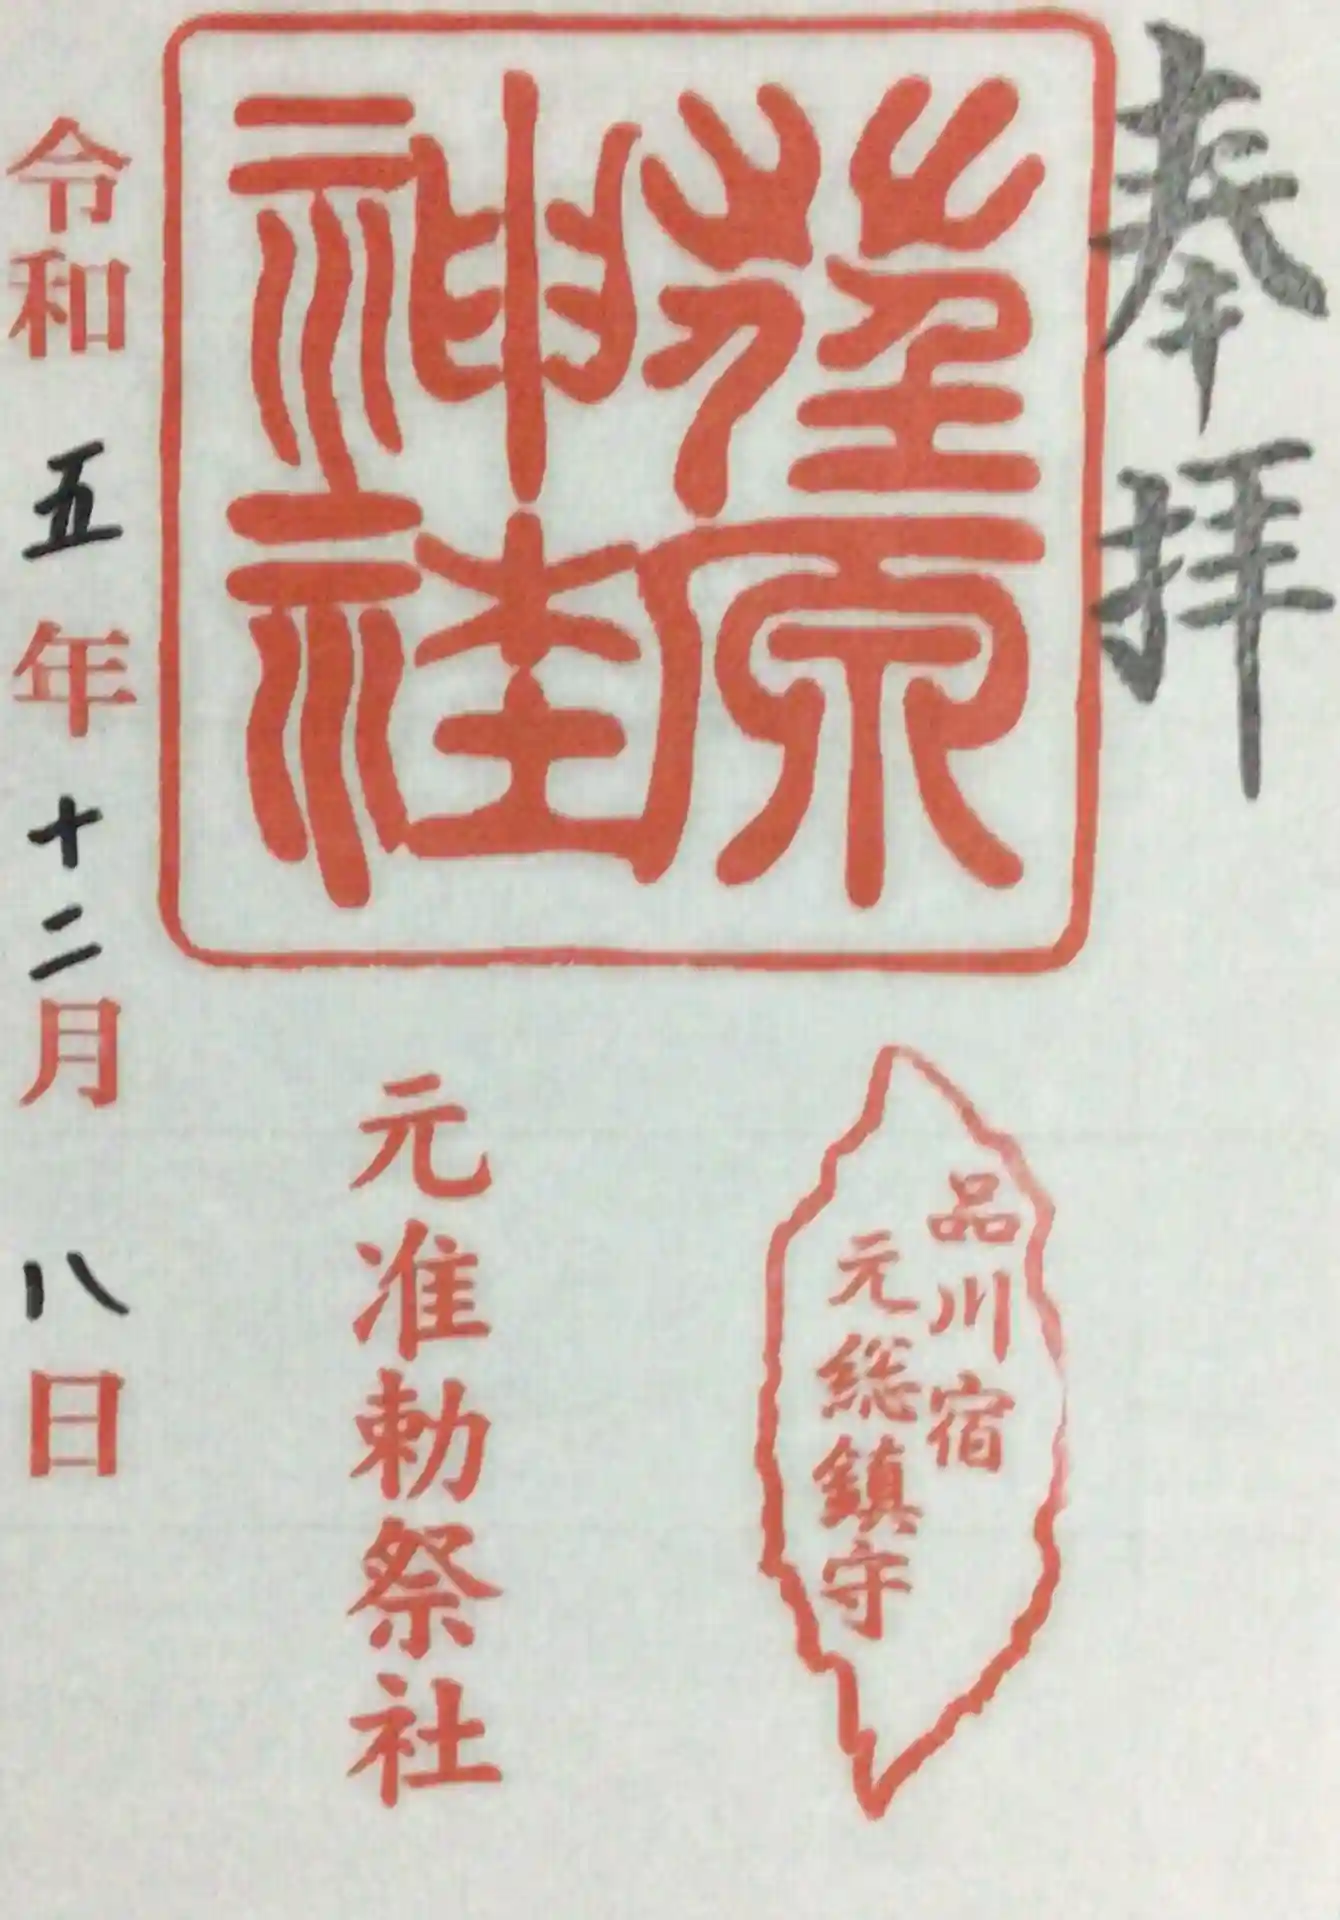 奉拝
荏原
神社
品川宿
元総鎮守
元准勅祭社
令和五年十二月八日